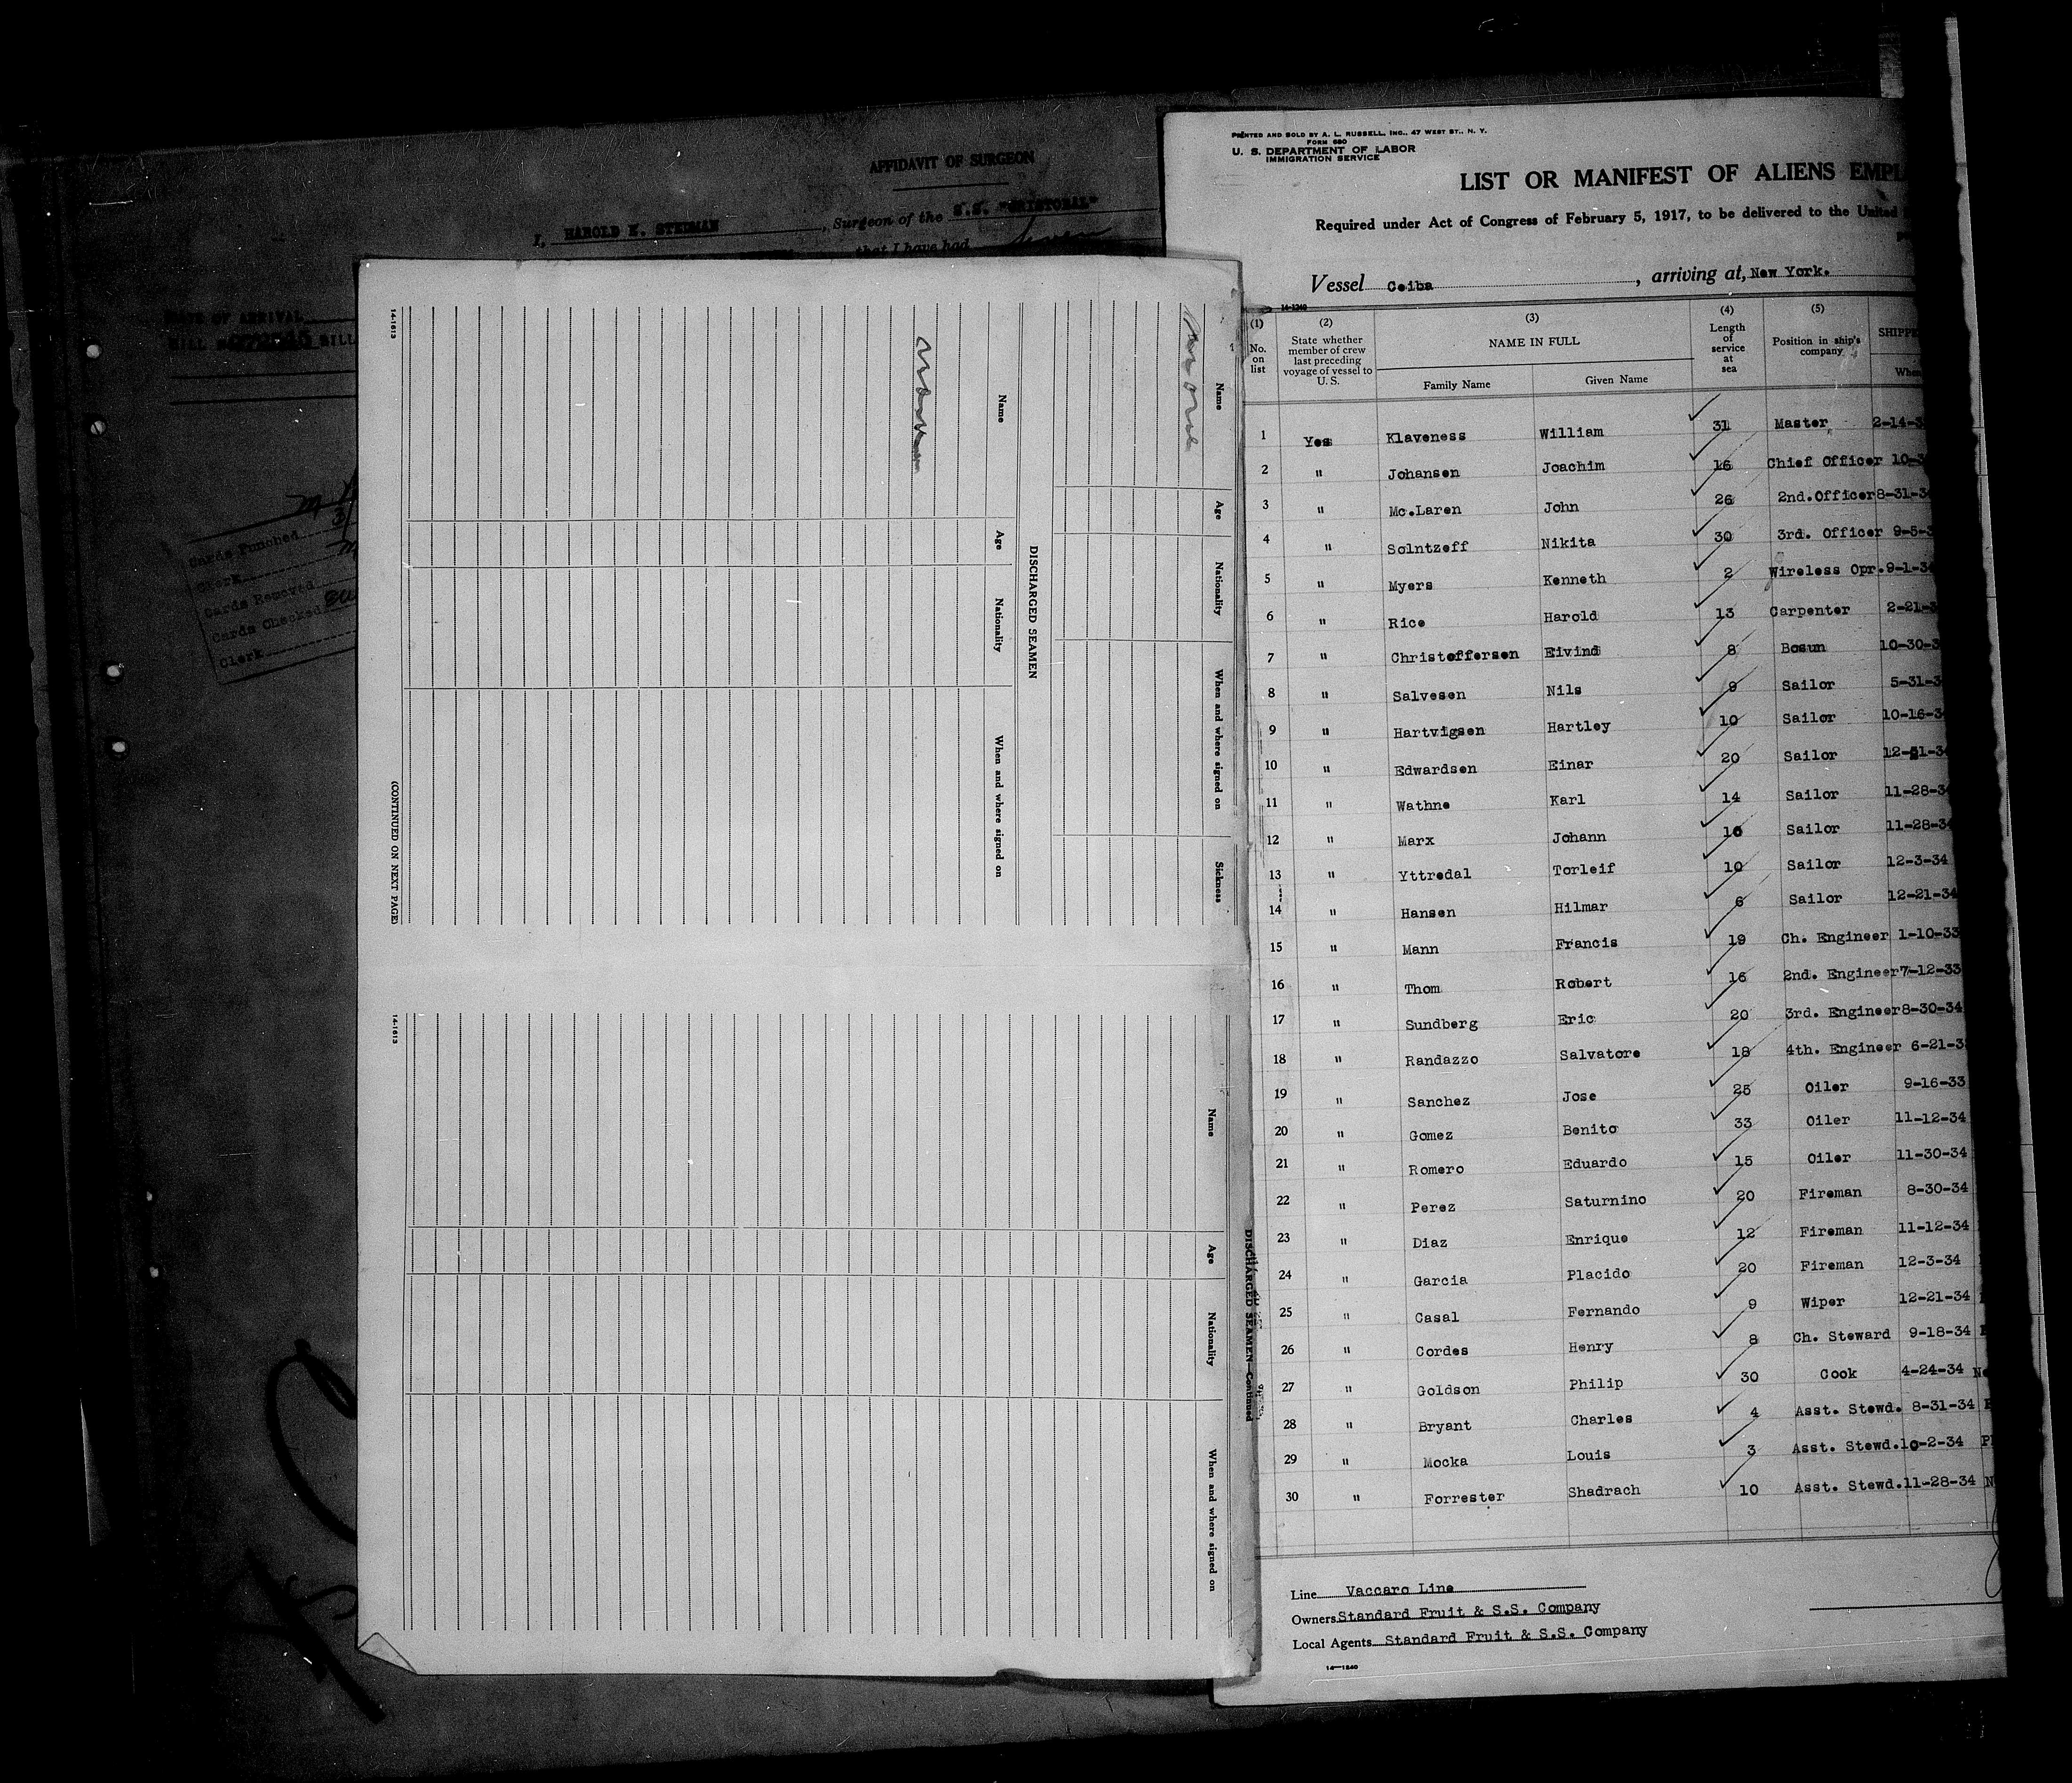 AFFIDAVIT OF SURGEON
I, HAROLD H. STEDMAN, Surgeon of the S.S. "CRISTOBAL"
that I have had seven
DATE OF ARRIVAL
Cards Punched
Clerk
Cards Removed
Cards Checked
Clerk
Name Age Nationality When and where signed on Sickness
DISCHARGED SEAMEN
Name Age Nationality When and where signed on
14-1613 (CONTINUED ON NEXT PAGE)
DISCHARGED SEAMEN—Continued
Name Age Nationality When and where signed on
14-1613
PRINTED AND SOLD BY A. L. RUSSELL, INC., 47 WEST ST., N. Y.
FORM 680
U. S. DEPARTMENT OF LABOR
IMMIGRATION SERVICE
LIST OR MANIFEST OF ALIENS EMPL
Required under Act of Congress of February 5, 1917, to be delivered to the United
Vessel Ceiba, arriving at, New York.
14-1240
(1) No. on list (2) State whether member of crew last preceding voyage of vessel to U. S. (3) NAME IN FULL Family Name Given Name (4) Length of service at sea (5) Position in ship's company SHIPPE When
1 Yes Klaveness William 31 Master 2-14-3
2 " Johansen Joachim 16 Chief Officer 10-3
3 " Mc.Laren John 26 2nd.Officer 8-31-34
4 " Solntzeff Nikita 30 3rd. Officer 9-5-3
5 " Myers Kenneth 2 Wireless Opr. 9-1-34
6 " Rice Harold 13 Carpenter 2-21-3
7 " Christoffersen Eivind 8 Bosun 10-30-3
8 " Salvesen Nils 9 Sailor 5-31-3
9 " Hartvigsen Hartley 10 Sailor 10-16-34
10 " Edwardsen Einar 20 Sailor 12-21-34
11 " Wathne Karl 14 Sailor 11-28-34
12 " Marx Johann 10 Sailor 11-28-34
13 " Yttredal Torleif 10 Sailor 12-3-34
14 " Hansen Hilmar 6 Sailor 12-21-34
15 " Mann Francis 19 Ch. Engineer 1-10-33
16 " Thom Robert 16 2nd. Engineer 7-12-33
17 " Sundberg Eric 20 3rd. Engineer 8-30-34
18 " Randazzo Salvatore 18 4th. Engineer 6-21-3
19 " Sanchez Jose 25 Oiler 9-16-33
20 " Gomez Benito 33 Oiler 11-12-34
21 " Romero Eduardo 15 Oiler 11-30-34
22 " Perez Saturnino 20 Fireman 8-30-34
23 " Diaz Enrique 12 Fireman 11-12-34
24 " Garcia Placido 20 Fireman 12-3-34
25 " Casal Fernando 9 Wiper 12-21-34
26 " Cordes Henry 8 Ch. Steward 9-18-34
27 " Goldson Philip 30 Cook 4-24-34 Ne
28 " Bryant Charles 4 Asst. Stewd. 8-31-34
29 " Mocka Louis 3 Asst. Stewd. 10-2-34 Ph
30 " Forrester Shadrach 10 Asst. Stewd. 11-28-34 N
Line Vaccaro Line
Owners Standard Fruit & S.S. Company
Local Agents Standard Fruit & S.S. Company
14—1240